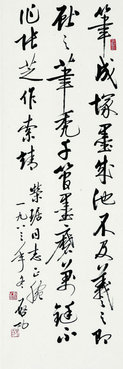 筆成塚墨成池不及羲之即
獻之筆禿千管墨磨萬鋌不
作張芝作索靖
同志正腕
一九八三年冬 啟功